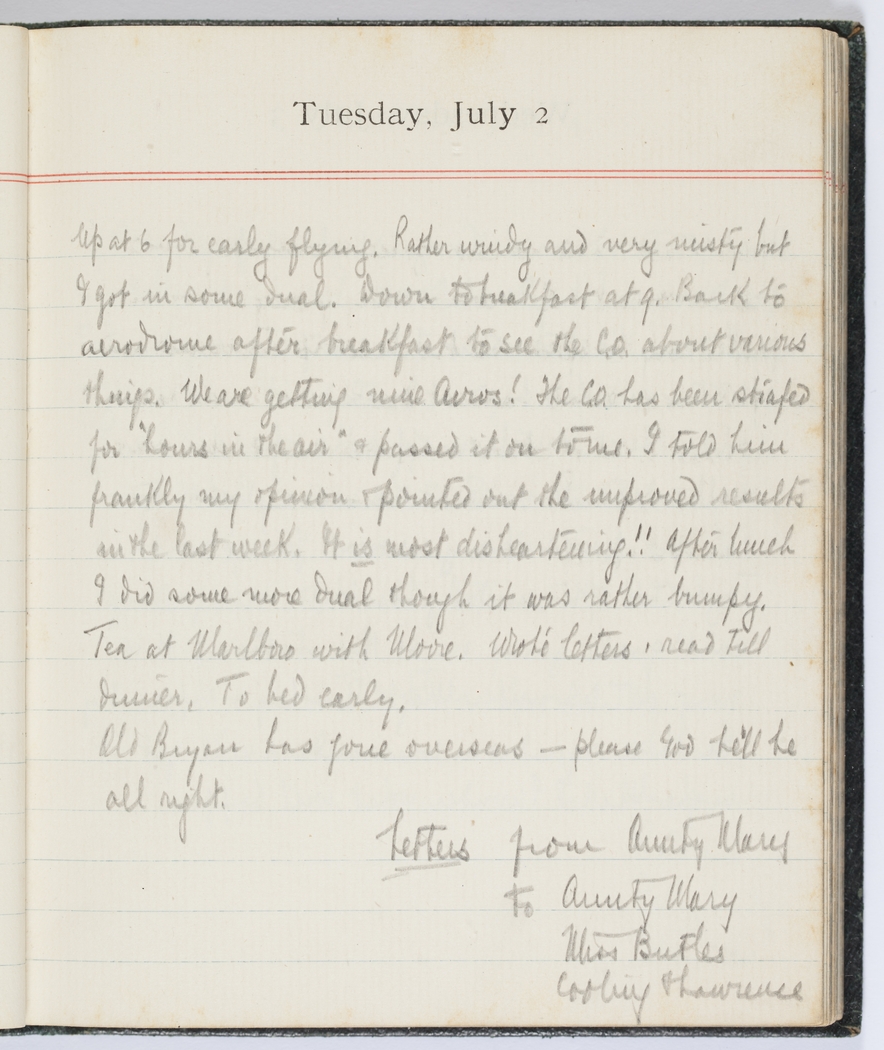 Tuesday, July 2
Up at 6 for early flying. Rather windy and very misty but
I got in some dual. Down to breakfast at 9. Back to
aerodrome after breakfast to see the C.O. about various
things. We are getting nine Avros! The C.O. has been strafed
for "hours in the air" & passed it on to me. I told him
frankly my opinion & pointed out the improved results
in the last week. It is most disheartening!! After lunch
I did some more dual though it was rather bumpy.
Tea at Marlboro with Moore. Wrote letters & read till
dinner. To bed early.
Old Bryan has gone overseas — please God he'll be
all right.
Letters from Aunty Mary
to Aunty Mary
Miss Butles
Cooling & Lawrence